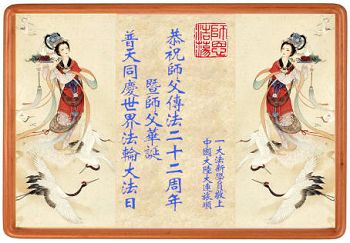 師恩浩蕩
恭祝師父傳法二十二周年
暨師父華誕
普天同慶世界法輪大法日
一大法新學員敬上
中國大陸大連旅順